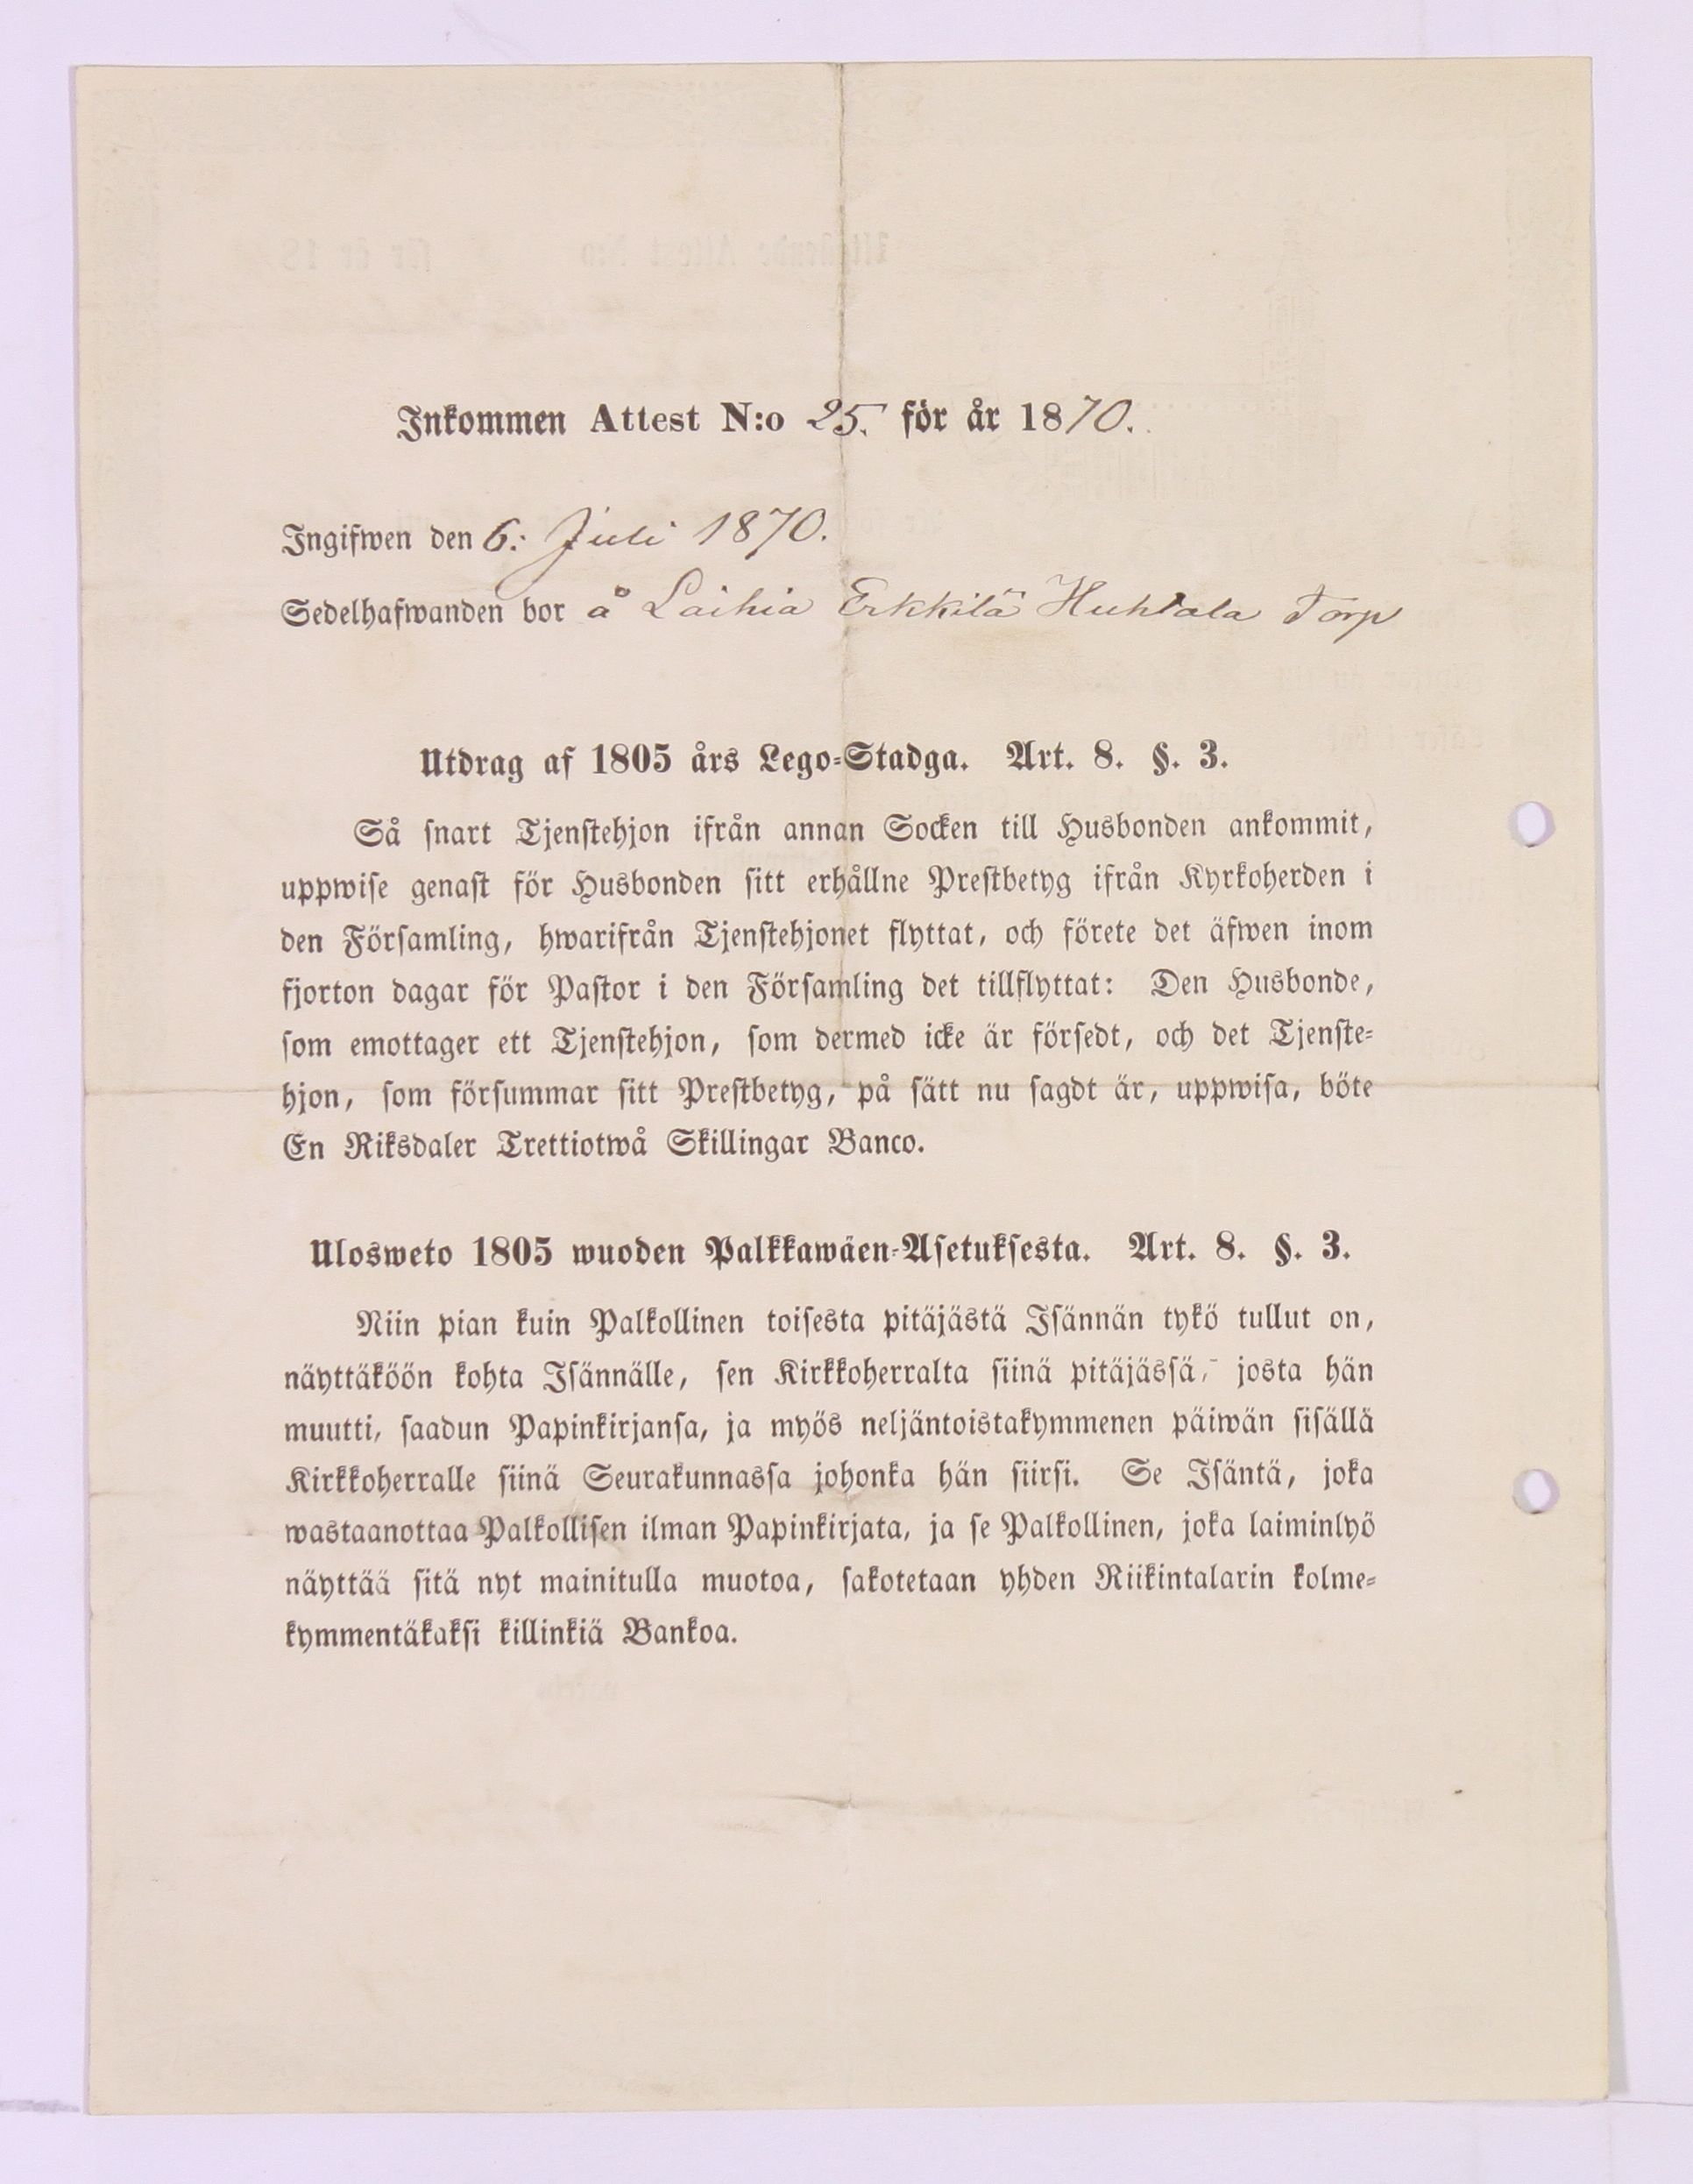 Inkommen Attest N:o 25. för år 1870.
Ingifwen den 6: Juli 1870.
Sedelhafwanden bor å Laihia Erkkilä Huhtala Torp
Utdrag af 1805 års Lego-Stadga. Art. 8. §. 3.
Så snart Tjenstehjon ifrån annan Socken till Husbonden ankommit,
uppwise genast för Husbonden sitt erhållne Prestbetyg ifrån Kyrkoherden i
den Församling, hwarifrån Tjenstehjonet flyttat, och förete det äfwen inom
fjorton dagar för Pastor i den Församling det tillflyttat: Den Husbonde,
som emottager ett Tjenstehjon, som dermed icke är försedt, och det Tjenste-
hjon, som försummar sitt Prestbetyg, på sätt nu sagdt är, uppwisa, böte
En Riksdaler Trettiotwå Skillingar Banco.
Ulosweto 1805 wuoden Palkkawäen-Asetuksesta. Art. 8. §. 3.
Niin pian kuin Palkollinen toisesta pitäjästä Isännän tykö tullut on,
näyttäköön kohta Isännälle, sen Kirkkoherralta siinä pitäjässä, josta hän
muutti, saadun Papinkirjansa, ja myös neljäntoistakymmenen päiwän sisällä
Kirkkoherralle siinä Seurakunnassa johonka hän siirsi. Se Isäntä, joka
wastaanottaa Palkollisen ilman Papinkirjata, ja se Palkollinen, joka laiminlyö
näyttää sitä nyt mainitulla muotoa, sakotetaan yhden Riikintalarin kolme-
kymmentäkaksi killinkiä Bankoa.